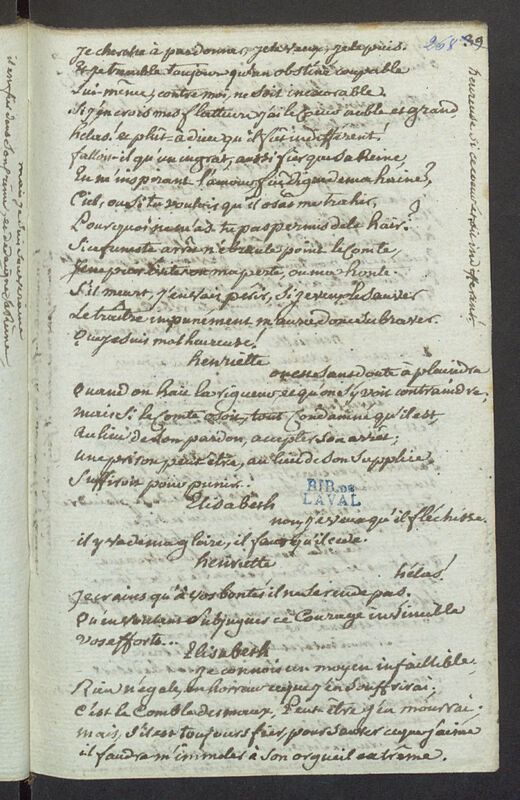 268 39
Je cherche à pardonner, je le veux, je le puis.
Et je tremble toujours qu'un obstiné coupable
Lui-meme, contre moi, ne soit inexorable.
Si j'en crois mes flatteurs, j'ai le coeur noble et grand,
helas! et plut à dieu qu'il fut indifférent!
falloit-il qu'un ingrat, aussi fier que sa Reine,
En m'inspirant l'amour, fut digne de ma haine?
Ciel, ou si tu voulois qu'il osât me trahir,
Pourquoi ne m'as-tu pas permis de le haïr?
Si ce funeste arrêt n'ébranle point le Comte,
Je ne puis éviter ou ma perte, ou ma honte.
S'il meurt, j'en vais périr, si je veux le sauver
Le traitre impunément m'aura donc su braver
Que je suis malheureuse!
henriette
on est sans doute à plaindre
Quand on hait la rigueur et qu'on s'y voit contraindre,
mais si le Comte osoit, tout Condamné qu'il est
Au lieu de son pardon, accepter son arrêt;
une prison peut être, au lieu de son supplice
Suffiroit pour punir..
Elisabeth
non, je veux qu'il fléchisse.
il y va de ma gloire, il faut qu'il cede.
henriette
hélas!
Je crains qu'à vos bontés il ne se rende pas.
Qu'en voulant subjuguer ce Courage invincible
Vos efforts...
Elisabeth
je connois un moyen infaillible.
Rien n'égale en horreur ce que j'en souffrirai;
C'est le Comble des maux, Peut être j'en mourrai.
mais, s'il est toujours fier, pour sauver ce que j'aime
il faudra m'immoler à son orgueil extrême.
BIB. DE
LAVAL
heureuse si ce coeur étoit indifférent!
mais je suis souveraine